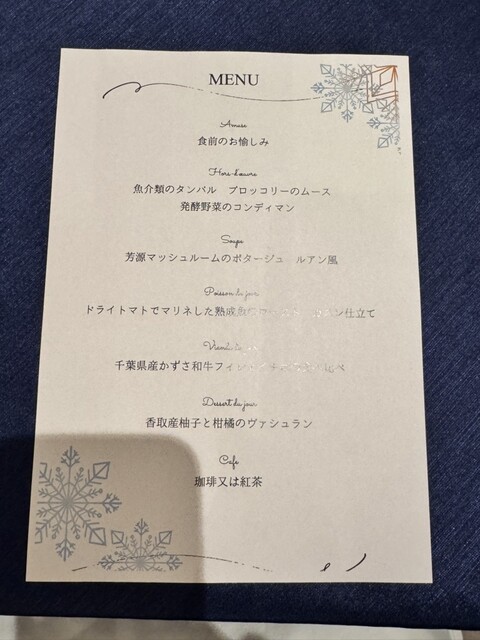 MENU
Amuse
食前のお愉しみ
Hors-d'œuvre
魚介類のタンバル ブロッコリーのムース
発酵野菜のコンディマン
Soupe
芳源マッシュルームのポタージュ ルアン風
Poisson du jour
ドライトマトでマリネした熟成魚の 仕立て
Viande
千葉県産かずさ和牛フィレ 比べ
Dessert du jour
香取産柚子と柑橘のヴァシュラン
Cafe
珈琲又は紅茶